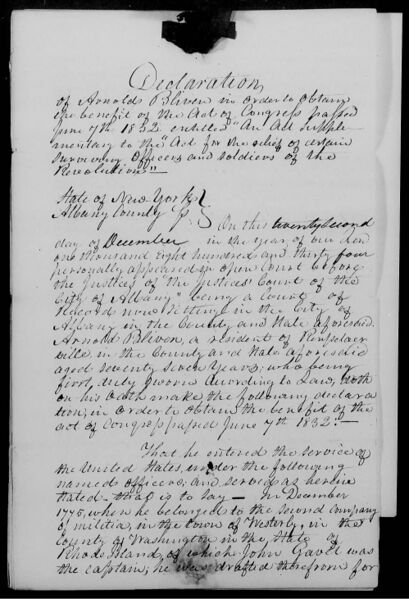 Declaration
of Arnold Bliven in order to obtain
the benefit of the Act of Congress passed
June 7th 1832 entitled "An Act supple
mentary to the "Act for the relief of certain
surviving Officers and soldiers of the
Revolution"
State of New York
Albany County
On this twenty second
day of December in the year of our Lord
one thousand eight hundred and thirty four
personally appeared in open Court before
the Justices of the "Justices' Court of the
City of Albany" being a court of
Record now sitting in the City of
Albany in the County and State aforesaid
Arnold Bliven, a resident of Renselaer
ville in the County and State aforesaid
aged seventy seven Years; who being
first duly sworn According to Law, doth
on his Oath make the following declara
tion; in order to obtain the benefit of the
act of Congress passed June 7th 1832.—
That he entered the service of
the United States, under the following
named officers, and served as herein
stated - that is to say - In December
1775, when he belonged to the second Company
of militia, in the town of Westerly, in the
County of Washington in the State of
Rhode Island, of which John Gavit was
the captain; he was drafted therefrom for